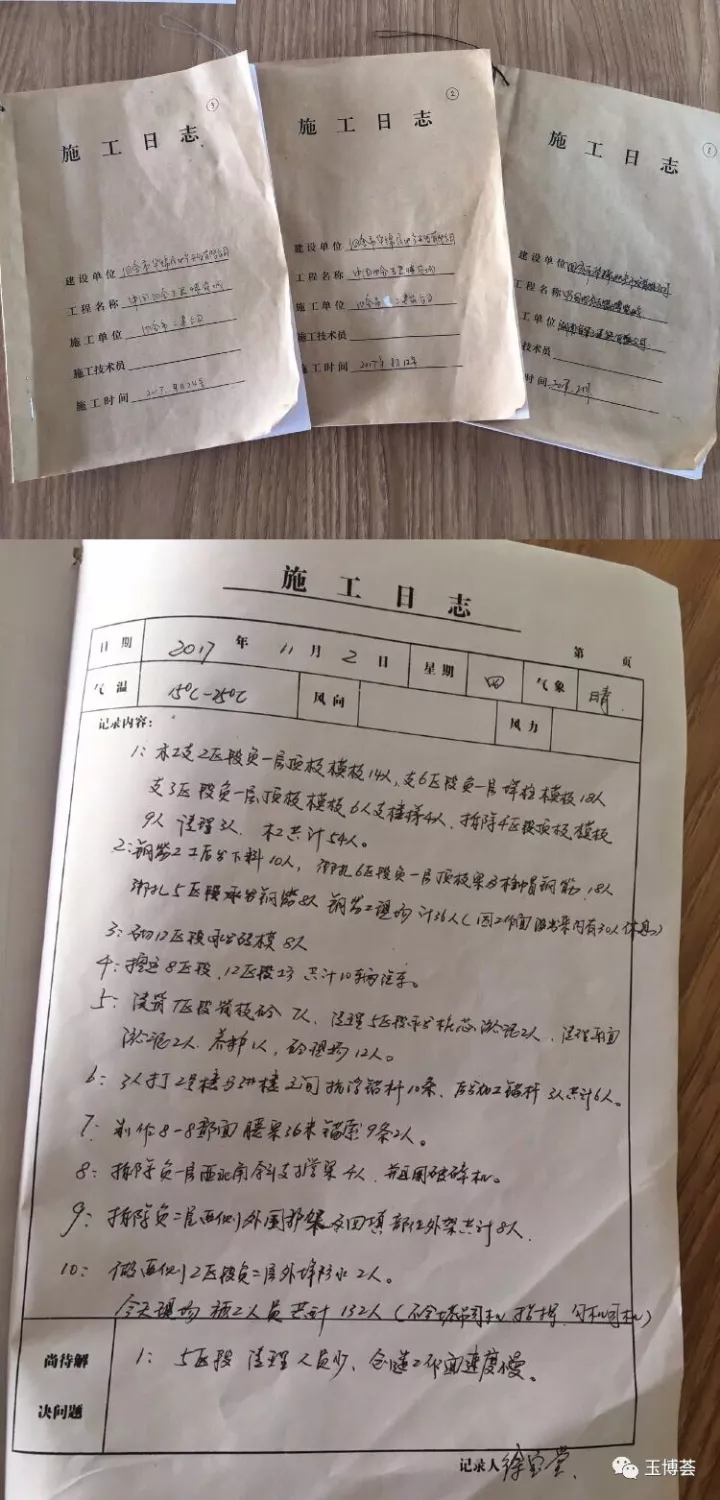 施工日志
①
建设单位 四会市华锦房地产开发有限公司
工程名称 中国四会玉器博览城
施工单位 四会市二建公司
施工技术员
施工时间 2017.
施工日志
②
建设单位 四会市华锦房地产开发有限公司
工程名称 中国四会玉器博览城
施工单位 四会市二建公司
施工技术员
施工时间 2017年 12号
施工日志
建设单位
工程名称
工单位
技术员
时间
施工日志
第 页
日期 2017 年 11 月 2 日 星期 四 气象 晴
气温 15℃-25℃ 风向 风力
记录内容:
1: 木工支2区段负一层顶板模板14人,支6区段负一层墙柱模板18人
支3区段负一层顶板模板6人支楼梯4人,拆除4区段顶板模板
9人 清理3人. 木工共计54人。
2: 钢筋工后台下料10人, 绑扎6区段负一层顶板梁 柱帽钢筋 18人
绑扎5区段承台钢筋8人 钢筋工现场计36人(因工作面 有30人休息)
3: 砌12区段承台砖模 8人
4: 挖运8区段、12区段土方 共计10辆汽车。
5: 浇筑7区段 板砼 7人、清理5区段承台桩芯淤泥2人、清理
淤泥2人. 养护1人, 砼现场12人。
6: 3人打2号楼与 楼之间抗浮锚杆10条、后台加工锚杆 3人共计6人。
7: 制作8-8剖面 腰梁36米 锚索9条2人。
8: 拆除负一层西北角斜支撑梁 4人. 并且用破碎机。
9: 拆除负二层西侧外围 架及回填部位外架共计8人.
10: 做西侧2区段负二层外墙防水 2人。
今天现场施工人员共计132人(不含塔吊司机 指挥、勾机司机)
尚待解决问题
1: 5区段 清理人员少、创造工作面速度慢。
记录人 徐宝堂
玉博荟